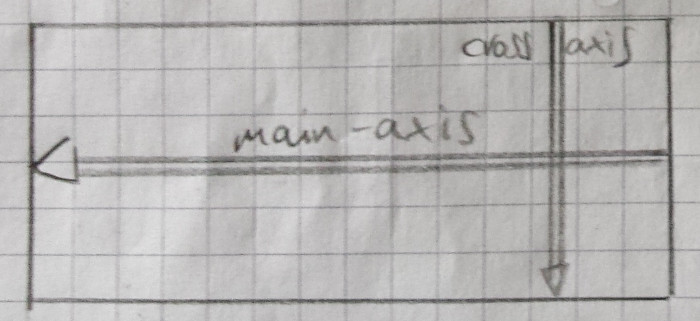 cross axis
main-axis